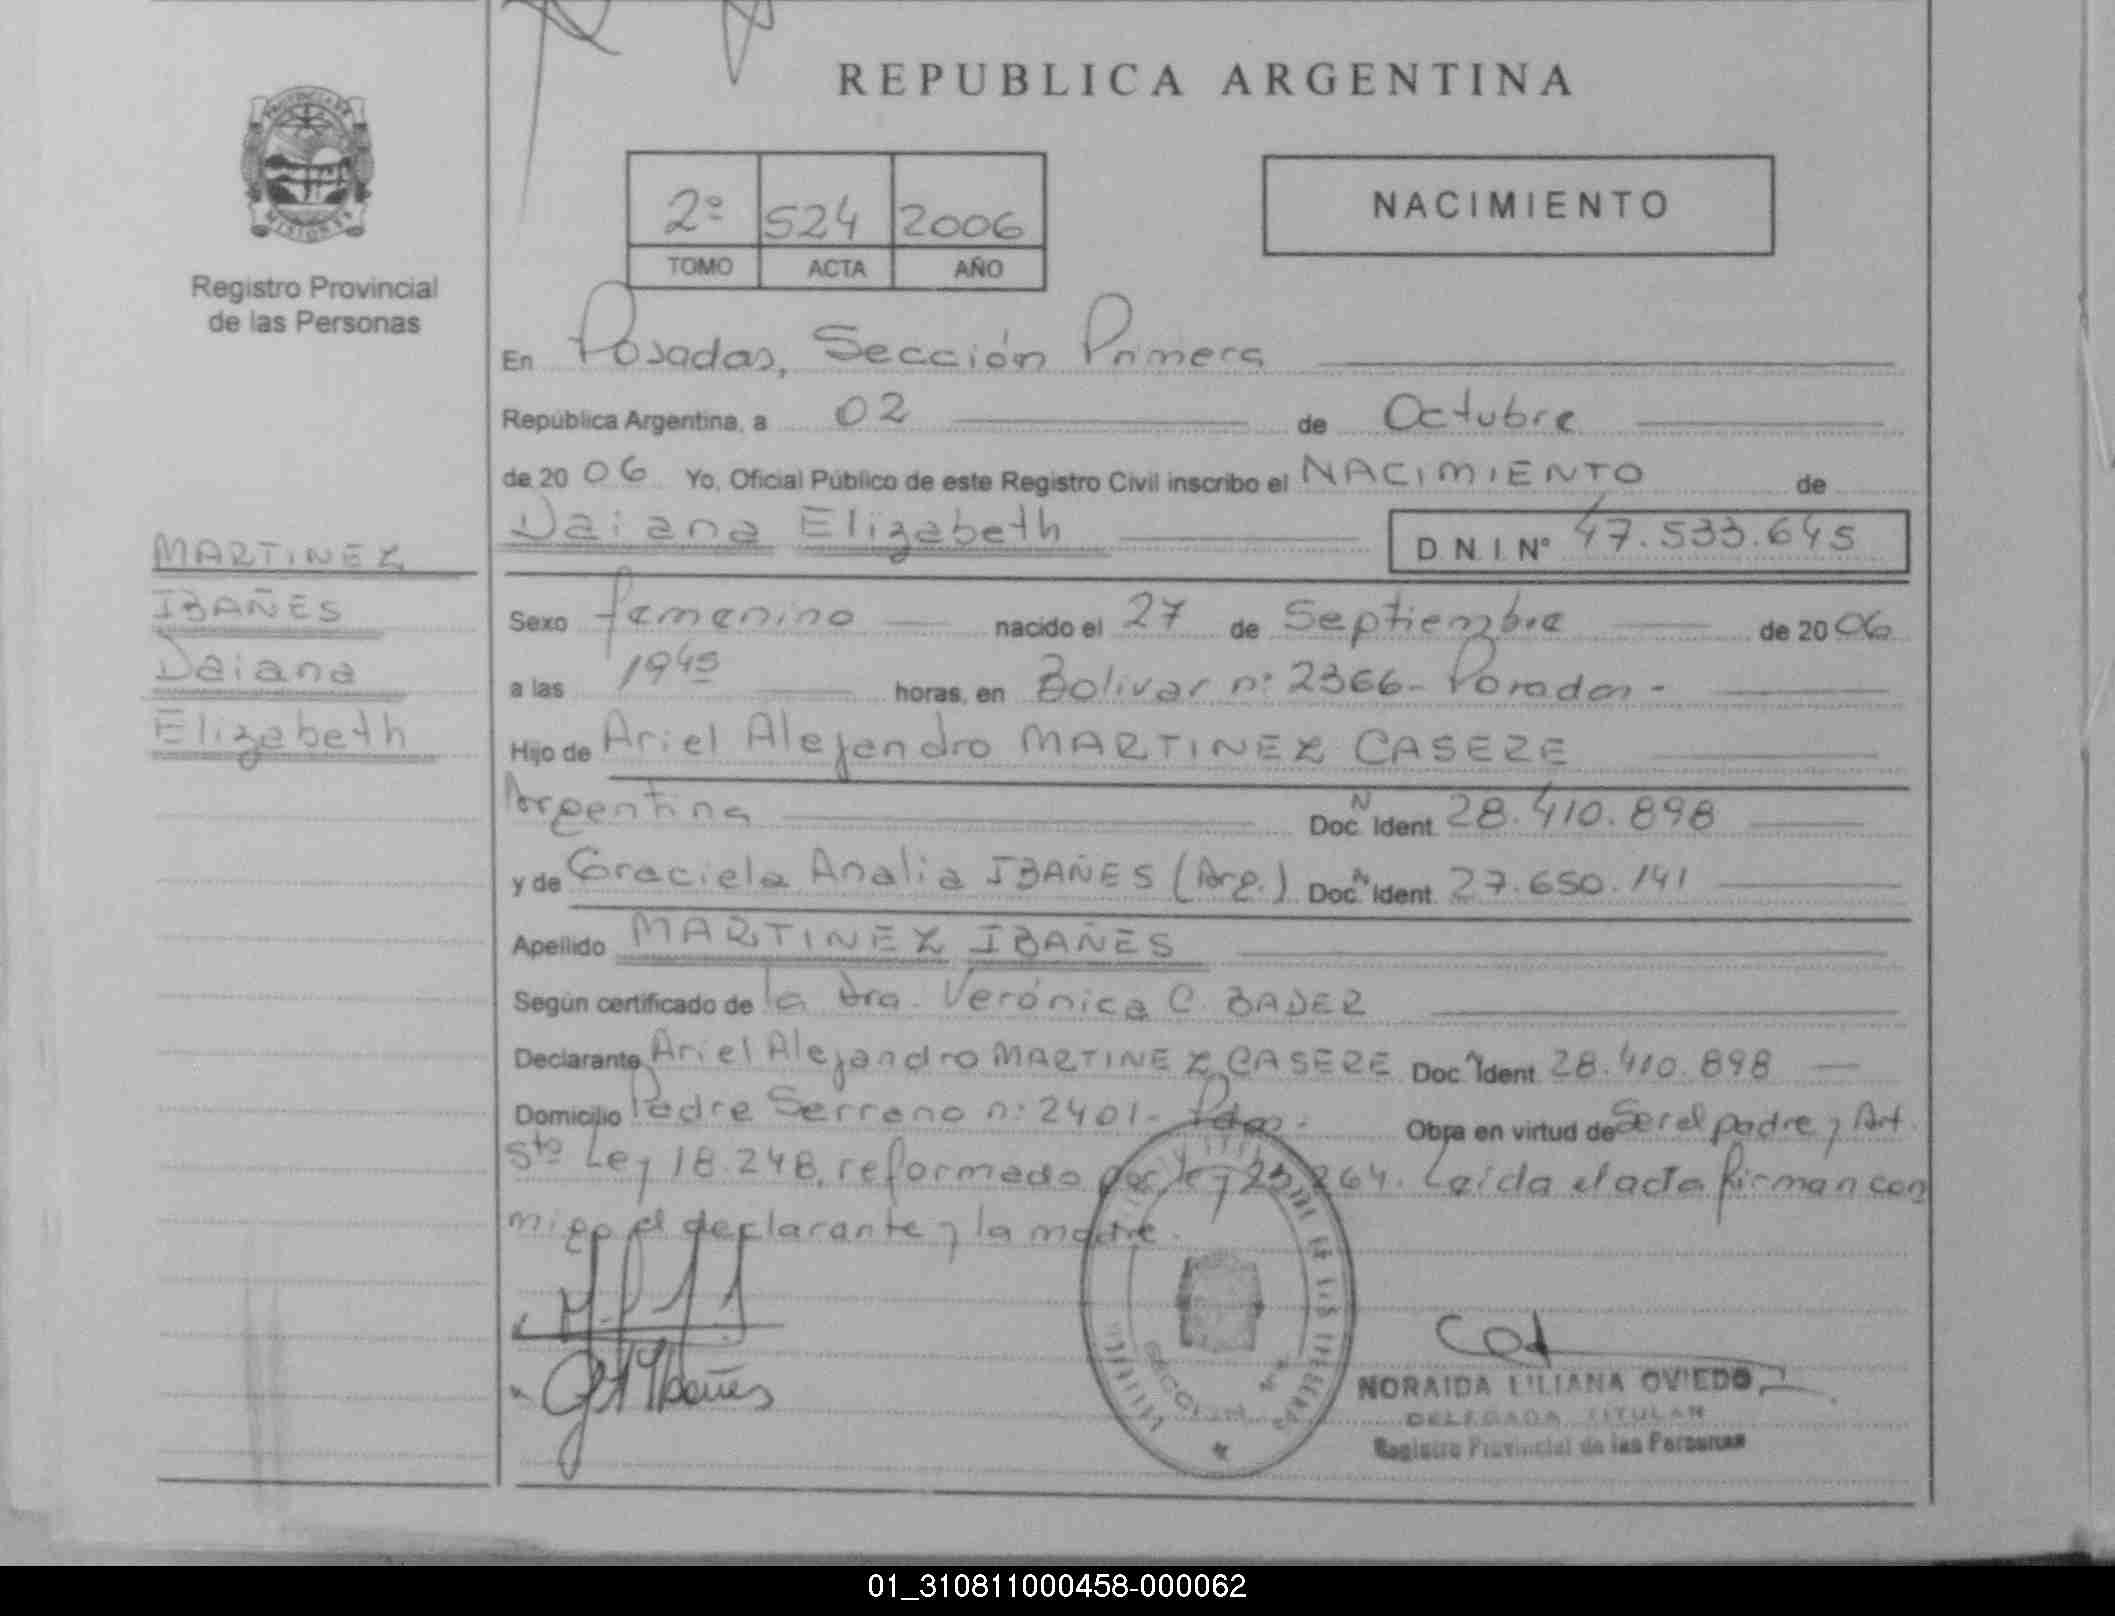 REPUBLICA ARGENTINA
PROVINCIA DE
MISIONES
Registro Provincial
de las Personas
2º 524 2006
TOMO ACTA AÑO
NACIMIENTO
En Posadas, Sección Primera
República Argentina, a 02 de Octubre
de 2006 Yo, Oficial Público de este Registro Civil inscribo el NACIMIENTO de
Daiana Elizabeth D.N.I. Nº 47.533.645
MARTINEZ
IBAÑES
Daiana
Elizabeth
Sexo femenino nacido el 27 de Septiembre de 2006
a las 19 45 horas, en Bolivar nº 2366- Posadas-
Hijo de Ariel Alejandro MARTINEZ CASERE
Argentina Doc. N Ident. 28.410.898
y de Graciela Analia IBAÑES (Arg.) Doc. N Ident. 27.650.141
Apellido MARTINEZ IBAÑES
Según certificado de la Dra. Verónica C. BADER
Declarante Ariel Alejandro MARTINEZ CASERE Doc. N Ident. 28.410.898
Domicilio Padre Serrano nº 2401- Pdas- Obra en virtud de Ser el padre y Art.
5to Ley 18.248, reformado por ley 23.264. Leída el acta firman con
migo el declarante y la madre.
G A Ibañes
SECCION
NORAIDA LILIANA OVIEDO
DELEGADA TITULAR
Registro Provincial de las Personas
01_310811000458-000062